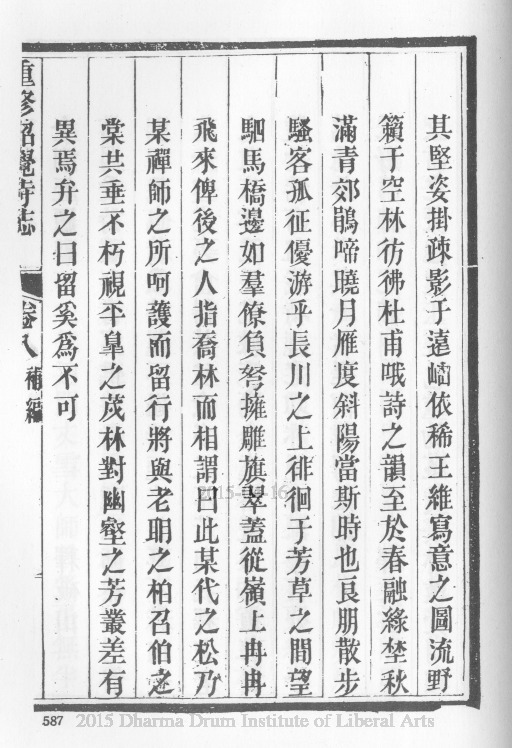 其堅姿掛疎影于遠岫依稀王維寫意之圖流野
籟于空林彷彿杜甫哦詩之韻至於春融綠埜秋
滿青郊鵑啼曉月雁度斜陽當斯時也良朋散步
騷客孤征優游乎長川之上徘徊于芳草之間望
駟馬橋邊如羣僚負弩擁雕旗翠蓋從嶺上冉冉
飛來俾後之人指喬林而相謂曰此某代之松乃
某禪師之所呵護而留行將與老聃之柏召伯之
棠共垂不朽視平臯之茂林對幽壑之芳叢差有
異焉弁之曰留奚爲不可
重修昭覺寺志 卷八 補編
587
2015 Dharma Drum Institute of Liberal Arts